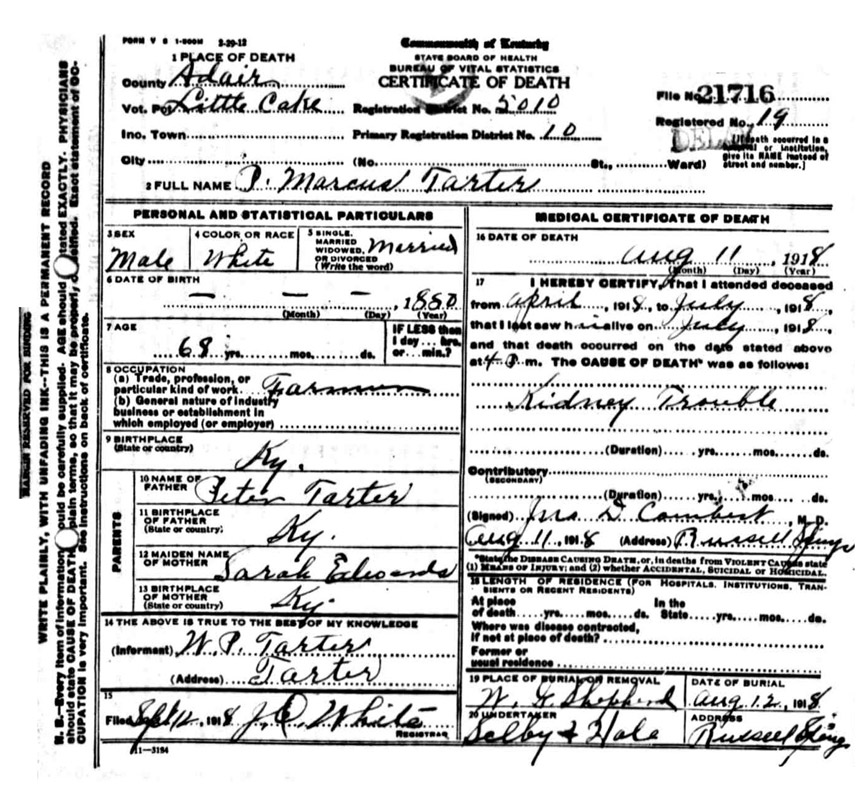 FORM V S 1-500M 2-29-12
Commonwealth of Kentucky
STATE BOARD OF HEALTH
BUREAU OF VITAL STATISTICS
CERTIFICATE OF DEATH
1 PLACE OF DEATH
County Adair
Vot. Little Cake Registration District No. 5010
Inc. Town Primary Registration District No. 10
City (No. St., Ward)
File No. 21716
Registered No. 19
[If death occurred in a
or institution,
give its NAME instead of
street and number.]
2 FULL NAME P. Marcus Tarter
PERSONAL AND STATISTICAL PARTICULARS
3 SEX Male
4 COLOR OR RACE White
5 SINGLE, MARRIED WIDOWED, OR DIVORCED (Write the word) Married
6 DATE OF BIRTH
— — — 1850
(Month) (Day) (Year)
7 AGE
68 yrs. mos. ds.
IF LESS than
1 day hrs.
or min.?
8 OCCUPATION
(a) Trade, profession, or
particular kind of work Farmer
(b) General nature of industry
business or establishment in
which employed (or employer)
9 BIRTHPLACE
(State or country) Ky.
PARENTS
10 NAME OF FATHER Peter Tarter
11 BIRTHPLACE OF FATHER (State or country) Ky.
12 MAIDEN NAME OF MOTHER Sarah Edwards
13 BIRTHPLACE OF MOTHER (State or country) Ky
14 THE ABOVE IS TRUE TO THE BEST OF MY KNOWLEDGE
(Informant) W. P. Tarter
(Address) Tarter
15
Filed Sept 12, 1918 White
REGISTRAR
11-3184
MEDICAL CERTIFICATE OF DEATH
16 DATE OF DEATH
Aug 11, 1918
(Month) (Day) (Year)
17 I HEREBY CERTIFY, That I attended deceased
from April, 1918, to July, 1918,
that I last saw him alive on July, 1918,
and that death occurred on the date stated above
at 4 P. m. The CAUSE OF DEATH* was as follows:
Kidney Trouble
(Duration) yrs. mos. ds.
Contributory
(SECONDARY)
(Duration) yrs. mos. ds.
(Signed) Jno D. Combest, M. D.
Aug 11, 1918 (Address) Russell Springs
*State the DISEASE CAUSING DEATH, or, in deaths from VIOLENT CAUSES state
(1) MEANS OF INJURY; and (2) whether ACCIDENTAL, SUICIDAL or HOMICIDAL.
18 LENGTH OF RESIDENCE (FOR HOSPITALS, INSTITUTIONS, TRANSIENTS OR RECENT RESIDENTS)
At place In the
of death yrs. mos. ds. State yrs. mos. ds.
Where was disease contracted,
if not at place of death?
Former or
usual residence
19 PLACE OF BURIAL OR REMOVAL DATE OF BURIAL
Shepherd Aug 12, 1918
20 UNDERTAKER ADDRESS
Selby & Hale Russell Springs
MARGIN RESERVED FOR BINDING
WRITE PLAINLY, WITH UNFADING INK--THIS IS A PERMANENT RECORD
N. B.—Every item of information should be carefully supplied. AGE should stated EXACTLY. PHYSICIANS
should state CAUSE OF DEATH plain terms, so that it may be properly classified. Exact statement of OC-
CUPATION is very important. See instructions on back of certificate.